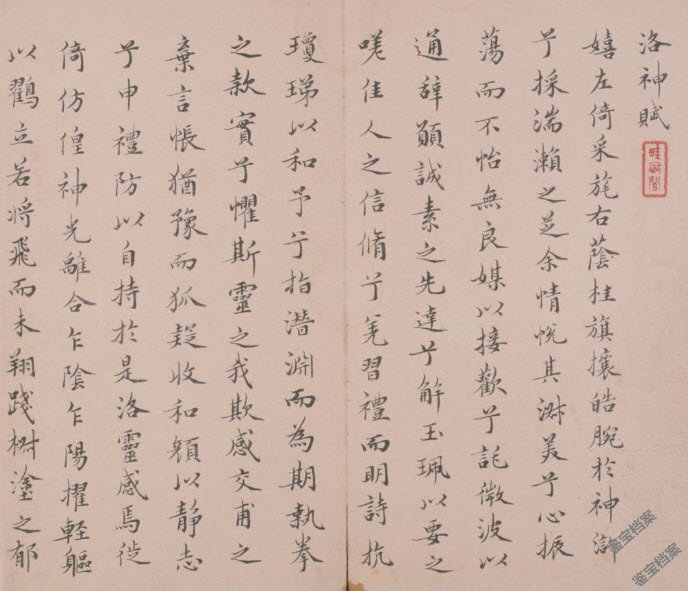 洛神賦
嬉左倚采旄右蔭桂旗攘皓腕於神滸
兮採湍瀨之芝余情悅其淑美兮心振
蕩而不怡無良媒以接歡兮託微波以
通辭願誠素之先達兮解玉珮以要之
嗟佳人之信脩兮羌習禮而明詩抗
瓊珶以和予兮指潛淵而為期執拳
之款實兮懼斯靈之我欺感交甫之
棄言悵猶豫而狐疑收和顏以静志
兮申禮防以自持於是洛靈感焉徙
倚仿偟神光離合乍陰乍陽擢軽軀
以鸖立若将飛而未翔踐樹塗之郁
鉴宝档案
鉴宝档案